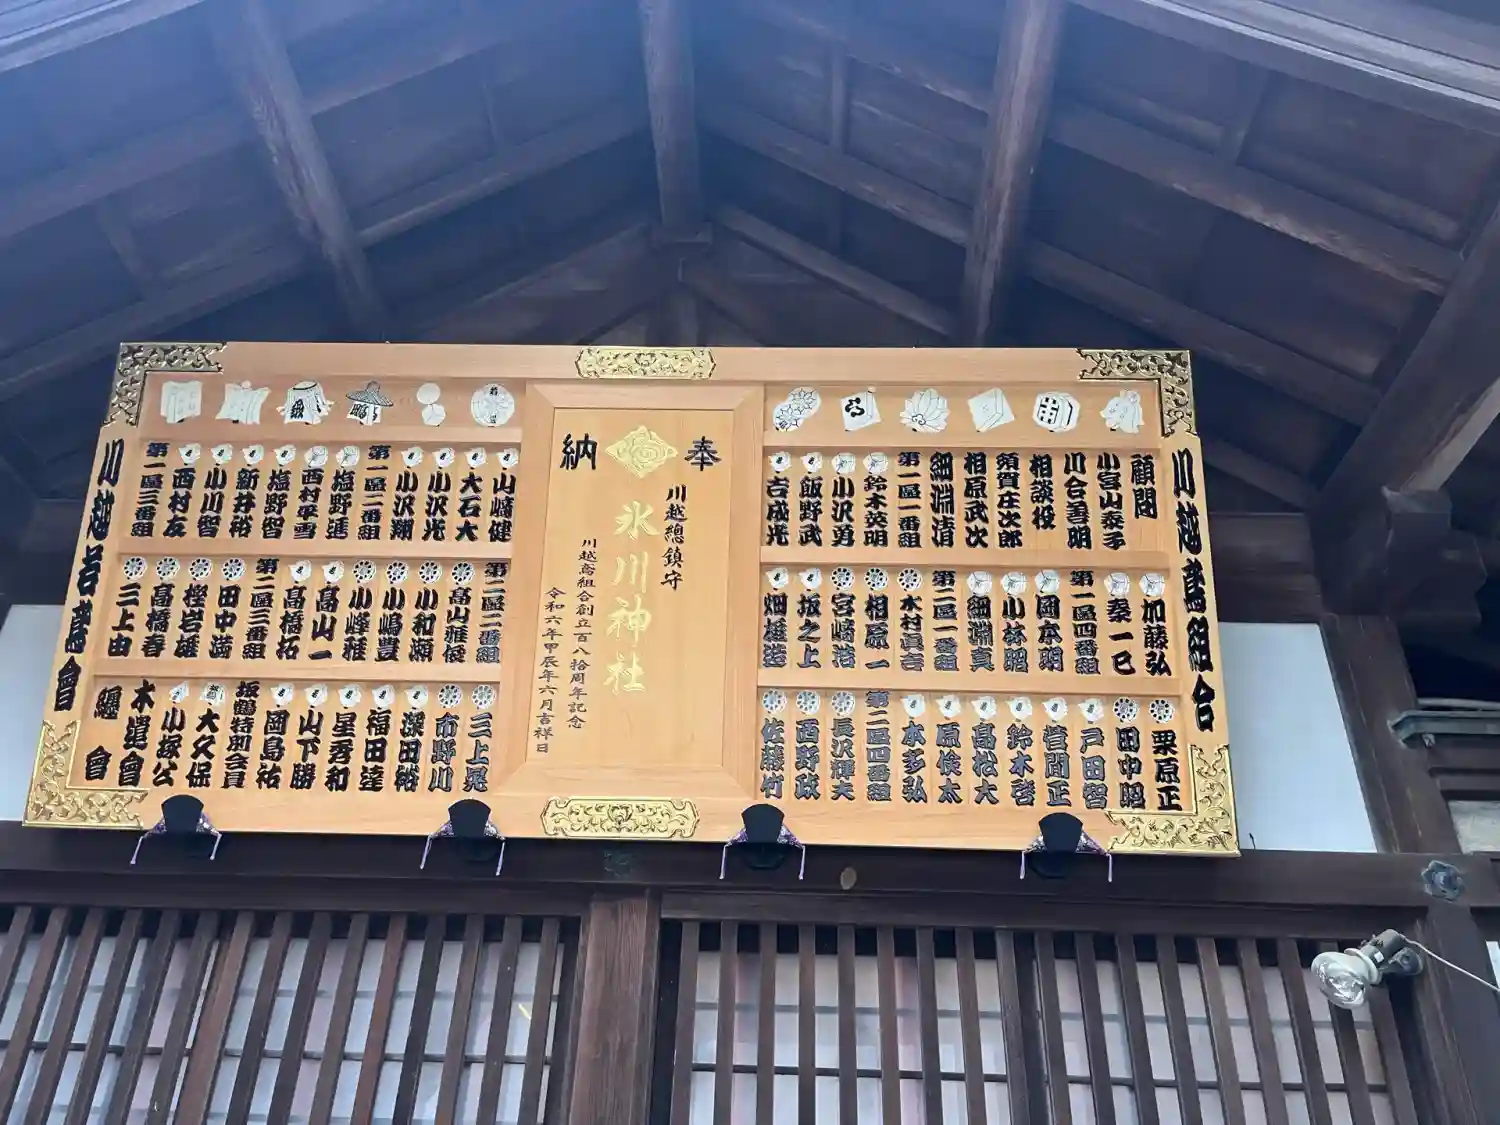 川越鳶組合
顧問
小宮山泰子
川合善明
相談役
須賀庄次郎
相原武次
細淵清
第一區一番組
鈴木英明
小沢勇
飯野武
吉成光
加藤弘
秦一巳
第一區四番組
國本明
小林昭
細淵真
第二區一番組
木村眞吉
相原一
宮崎浩
坂之上
畑雄造
栗原正
田中昭
戸田智
菅間正
鈴木啓
高松大
原俊太
本多弘
第二區四番組
長沢輝夫
西野政
佐藤竹
奉納
川越總鎮守
氷川神社
川越鳶組合創立百八拾周年記念
令和六年甲辰年六月吉祥日
山崎健
大石大
小沢光
小沢翔
第一區二番組
塩野進
西村平雪
塩野智
新井裕
小川智
西村友
第一區三番組
第二區二番組
高山雅俊
小和瀬
小嶋豊
小峰雅
高山一
高橋拓
第二區三番組
田中満
樫岩雄
高橋春
三上由
三上晃
市野川
深田裕
福田達
星秀和
山下勝
國島祐
坂鶴特別会員
大久保
小塚公
木遣會
纏會
川越若鳶會